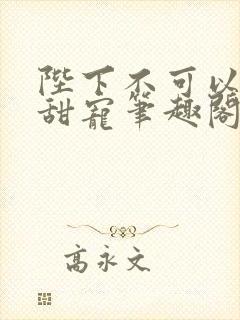 陛下不可以
甜寵筆趣閣
高永文